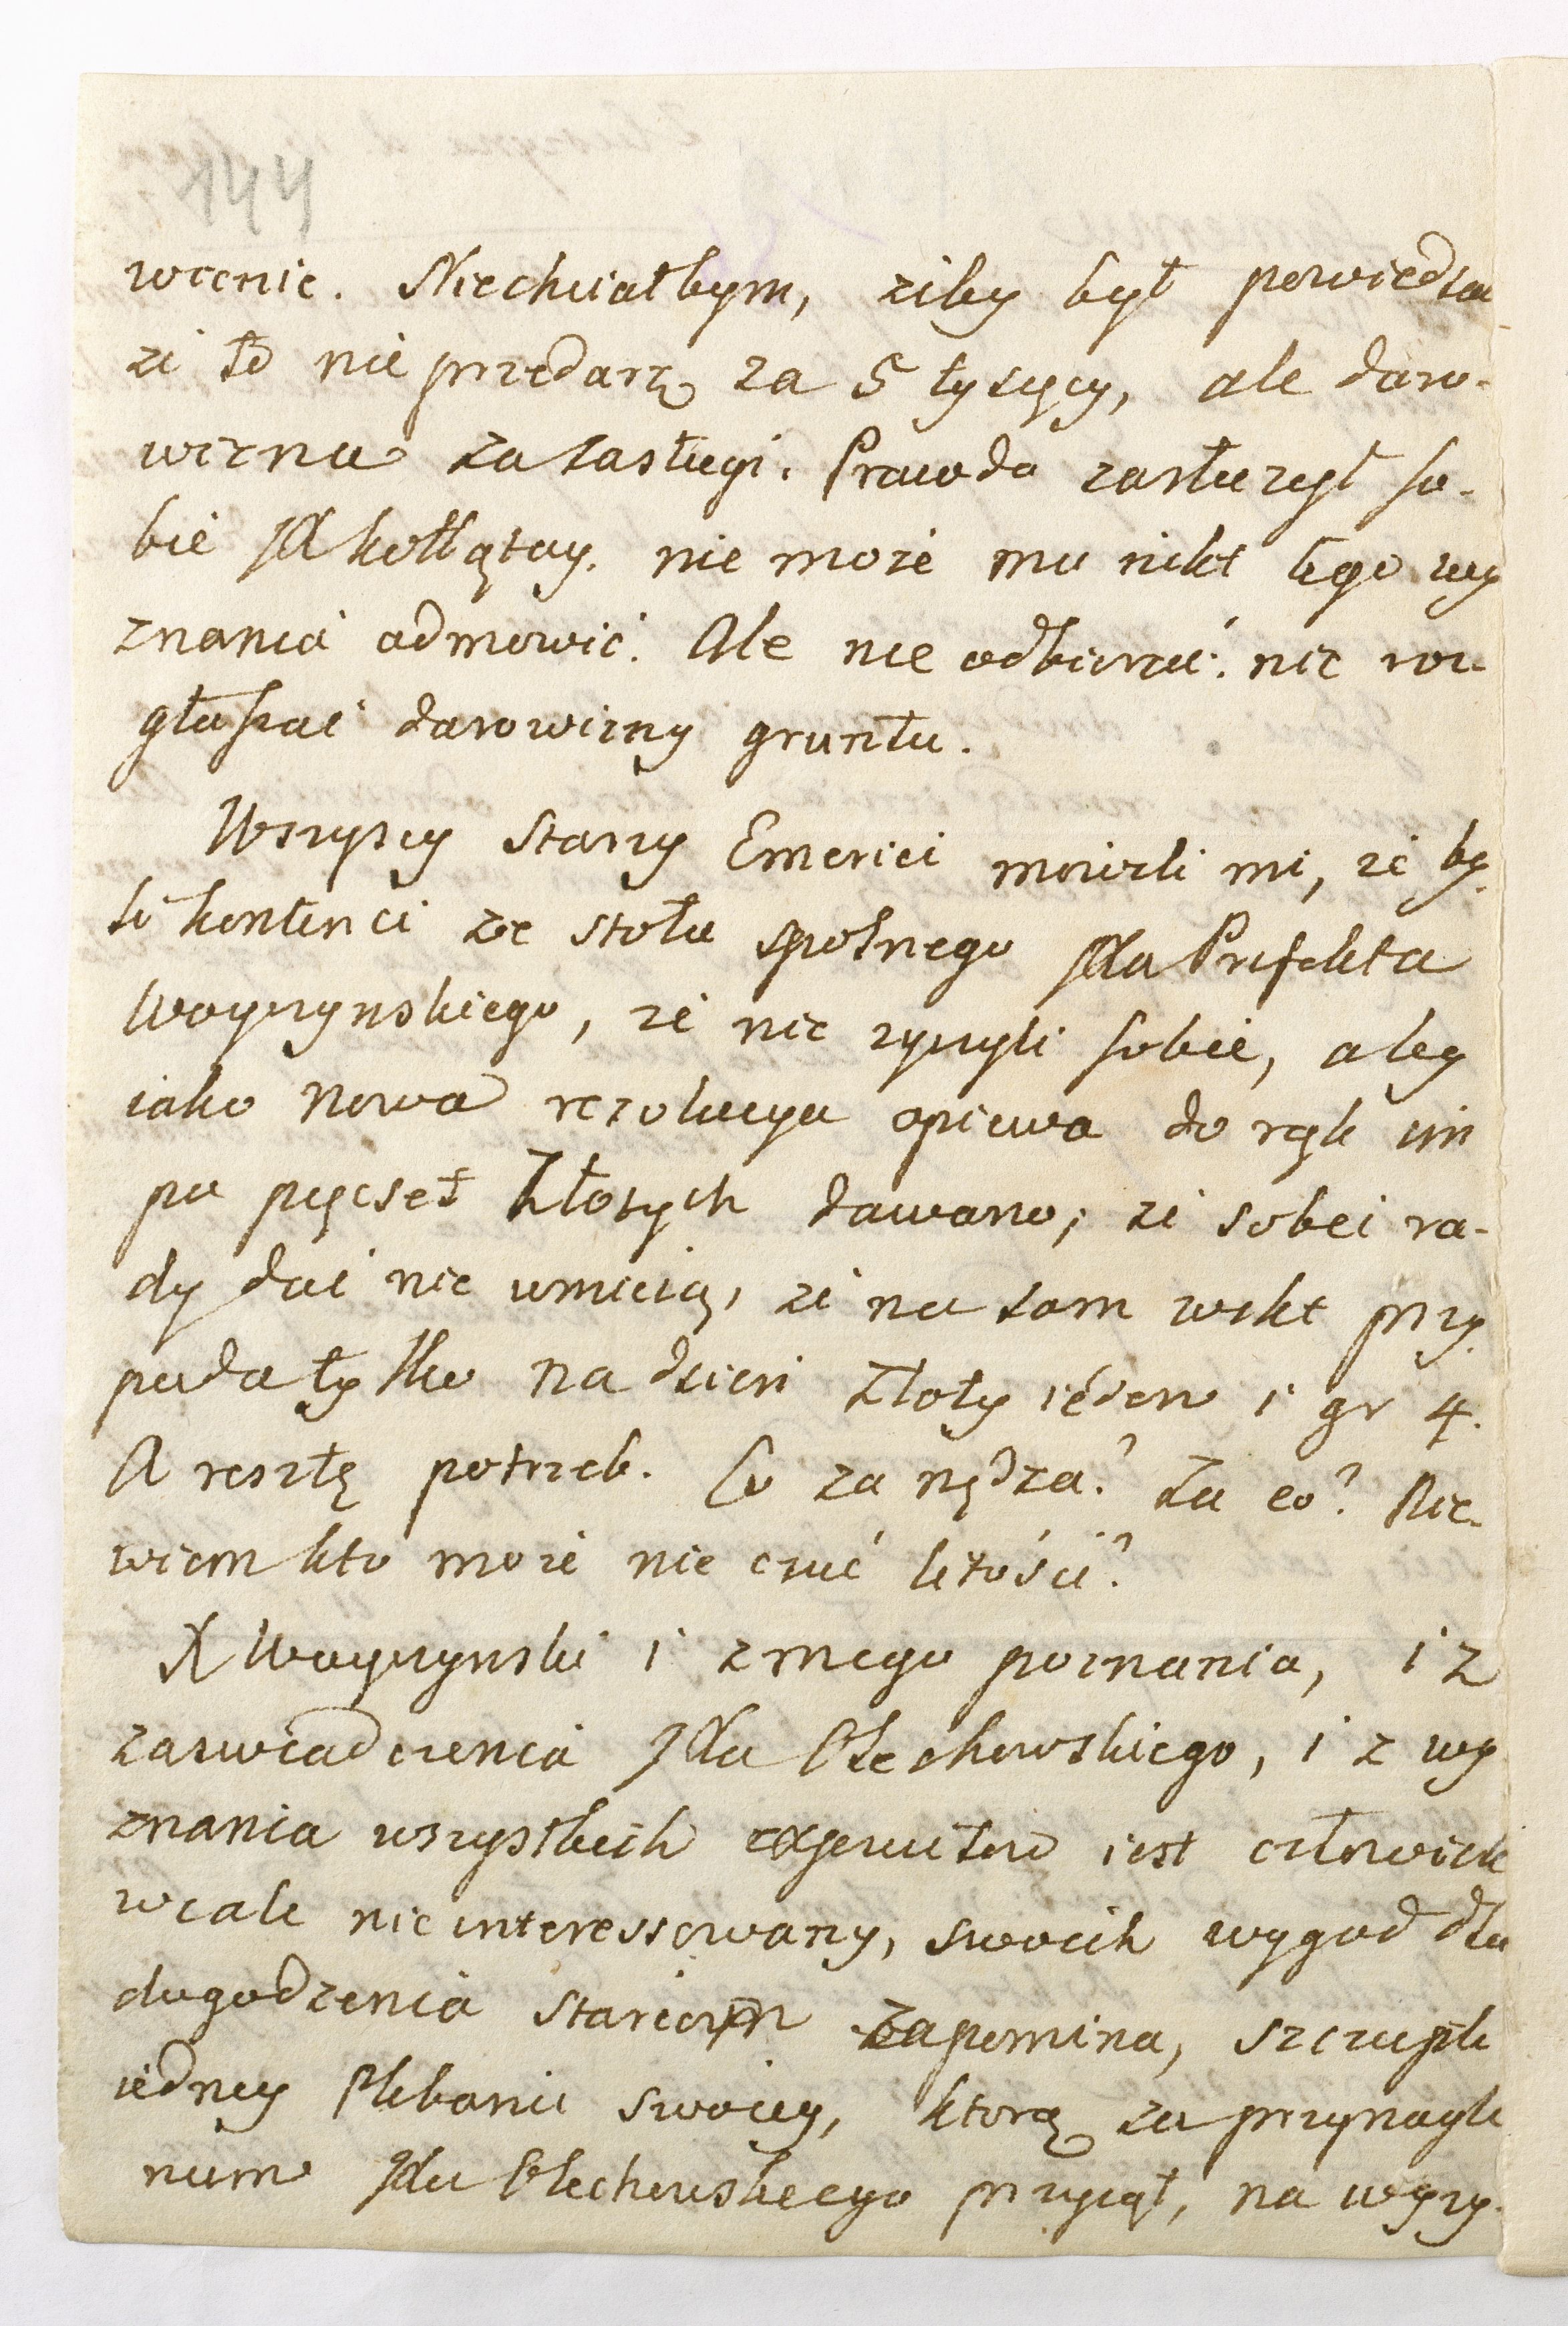 144
wienie. Niechciałbym, żeby był powiedzia
że to nie przedarz za 5 tysięcy, ale daro-
wizna za zasługi. Prawda zasłużył so-
bie JX Kołłątay. nie może mu nikt tego wy
znania odmowić. Ale nie odbierać: nie roz
głaszać darowizny gruntu.
Wszyscy starzy Emerici mowili mi, że by-
li kontenci ze stołu spolnego JXa Prefekta
Woyczynskiego, że nie zyczyli sobie, aby
iako nowa rezolucya opiewa do rąk im
po pięcset Złotych dawano; że sobie ra-
dy dać nie umieią, że na sam wikt przy-
pada tylko na dzień złoty ieden i gr 4.
A resztę potrzeb. Co za nędza? Za co? Nie-
wiem kto może nie czuć litości?
X Woyczynski i z mego poznania, i z
zaswiadczenia JXa Olechowskiego, i z wy
znania wszystkich exjezuitow iest człowiek
wcale nieinteressowany, swoich wygod dla
dogodzenia starcom zapomina, szczupłe
iedney Plebanii swoiey, ktorą za przynagle
niem JXa Olechowskiego przyiął, na wyży-